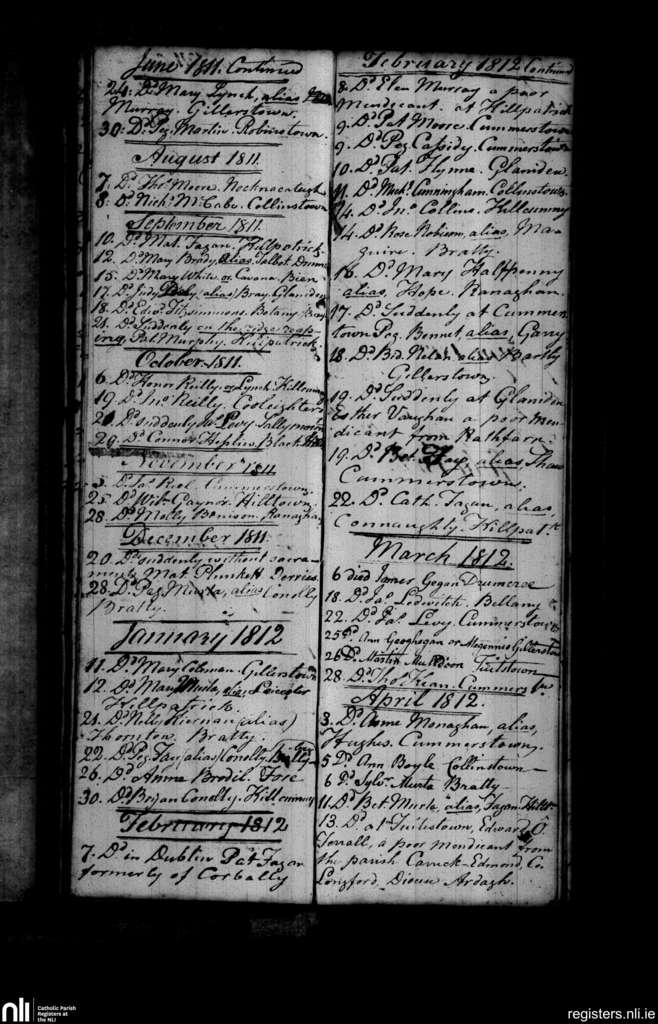 June 1811. Continued
24. Dd Mary Lynch, alias
Murray. Gillerstown.
30. Dd Peg Martin. Robinstown.
August 1811.
7. Dd Thos Moore. Nocknacaleagh
8. Dd Nichs McCabe. Collinstown
September 1811.
10. Dd Mat. Fagan. Kilpatrick.
12. Dd Mary Brady, alias, Talbot. Drum
15. Dd Mary White, or Cavona. Bien
17. Dd Judy Daly (alias) Bray. Glamden
18. Dd Edwd Fitzsimmons. Botany
21. Dd Suddenly on the
ing, Pat Murphy. Killpatrick.
October 1811.
6. Dd Honor Reilly, or Lynch. Killcumny
19. Dd Jno Reilly. Cooleighter
21. Dd suddenly Levy. Sallymount
29. Dd Connor Heslin. Black
November 1811
3. Dd Jas Cummerstown.
25. Dd Wm Gaynor. Hilltown.
28. Dd Molly Ranagha
December 1811.
20. Dd suddenly without sacra-
ments Mat Plunkett Derries.
28. Dd Peg Murta, alias Conolly
Bratty.
January 1812
11. Dd Mary Coleman. Gillerstown
12. Dd Mary Murta, alias
Killpatrick.
21. Dd Nelly Kiernan (alias)
Thornton. Bratty.
22. Dd Peg Fay (alias) Conolly
26. Dd Anna Brodil. Fore
30. Dd Bryan Conolly. Killcumny
February 1812
7. Dd in Dublin Pat Fagan
formerly of Corbally
February 1812 Continued
8. Dd Elen Murray a poor
Mendicant. at Killpatrick
9. Dd Pat Moore. Cummerstown
9. Dd Peg Cassidy. Cummerstown
10. Dd Pat. Flynne. Glamden.
11. Dd Michl Cunningham. Collinstown.
14. Dd Jno Collins. Killcumny
14. Dd Rose Robison, alias, Ma-
guire. Bratty.
16. Dd Mary Halfpenny
alias, Hope. Ranaghan.
17. Dd Suddenly at Cummers
town Peg Bennet, alias, Garry
18. Dd Bid alias
Gillerstown
19. Dd Suddenly at Glamden
Esther Vaughan a poor men-
dicant from Rathfarn.
19. Dd Bet Fay, alias, Shaw
Cummerstown.
22. Dd Cath. Fagan, alias,
Connaughty. Killpatk
March 1812.
6 died James Gogan Drumcree
18. Dd Jas Ledwitch. Bellany
22. Dd Jas Levy. Cummerstown
25 Dd Ann Geoghegan or Magennis Gillerstown
26 Dd Martin Muldoon Tuitstown
28. Dd Thos Kean. Cummerstn
April 1812.
3. Dd Anne Monaghan, alias,
Hughes. Cummerstown.
5 Dd Ann Boyle Collinstown
6 Dd Sylvr Murta Bratty
11 Dd Bet Murta alias, Fagan. Hillt
13. Dd at Tuitestown, Edward O
Ferrall, a poor mendicant from
the parish Carrick-Edmond, Co
Longford, Diocese Ardagh.
nli
Catholic Parish
Registers at
the NLI
registers.nli.ie